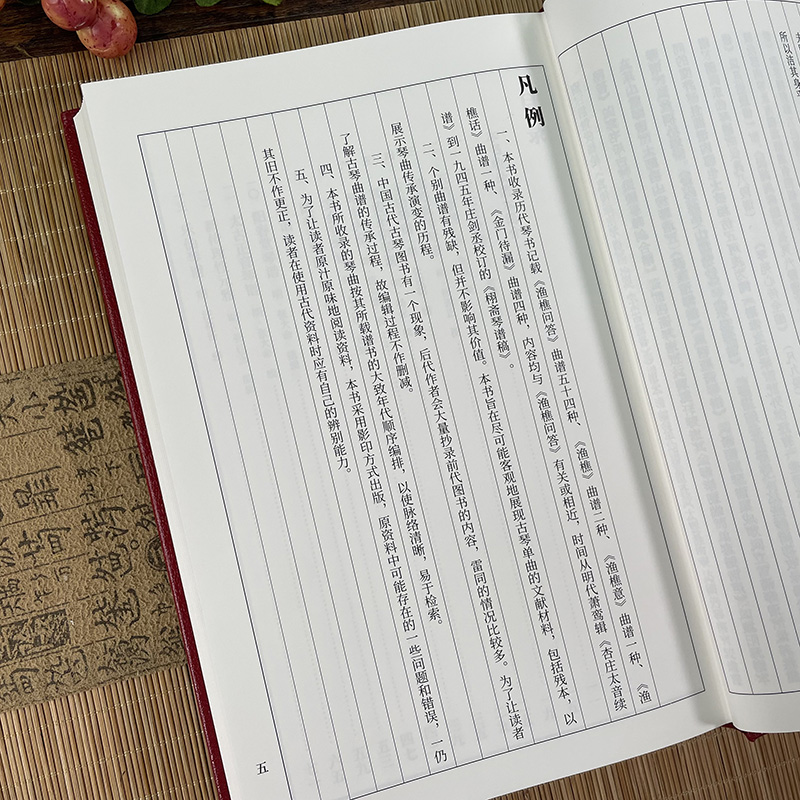 凡例
一、本书收录历代琴书记载《渔樵问答》曲谱五十四种、《渔樵》曲谱二种、《渔樵意》曲谱一种、《渔
樵话》曲谱一种、《金门待漏》曲谱四种，内容均与《渔樵问答》有关或相近，时间从明代萧鸾辑《杏庄太音续
谱》到一九四五年庄剑丞校订的《栩斋琴谱稿》。
二、个别曲谱有残缺，但并不影响其价值。本书旨在尽可能客观地展现古琴单曲的文献材料，包括残本，以
展示琴曲传承演变的历程。
三、中国古代古琴图书有一个现象，后代作者会大量抄录前代图书的内容，雷同的情况比较多。为了让读者
了解古琴曲谱的传承过程，故编辑过程不作删减。
四、本书所收录的琴曲按其所载谱书的大致年代顺序编排，以使脉络清晰，易于检索。
五、为了让读者原汁原味地阅读资料，本书采用影印方式出版，原资料中可能存在的一些问题和错误，一仍
其旧不作更正，读者在使用古代资料时应有自己的辨别能力。
五
所以洁其身